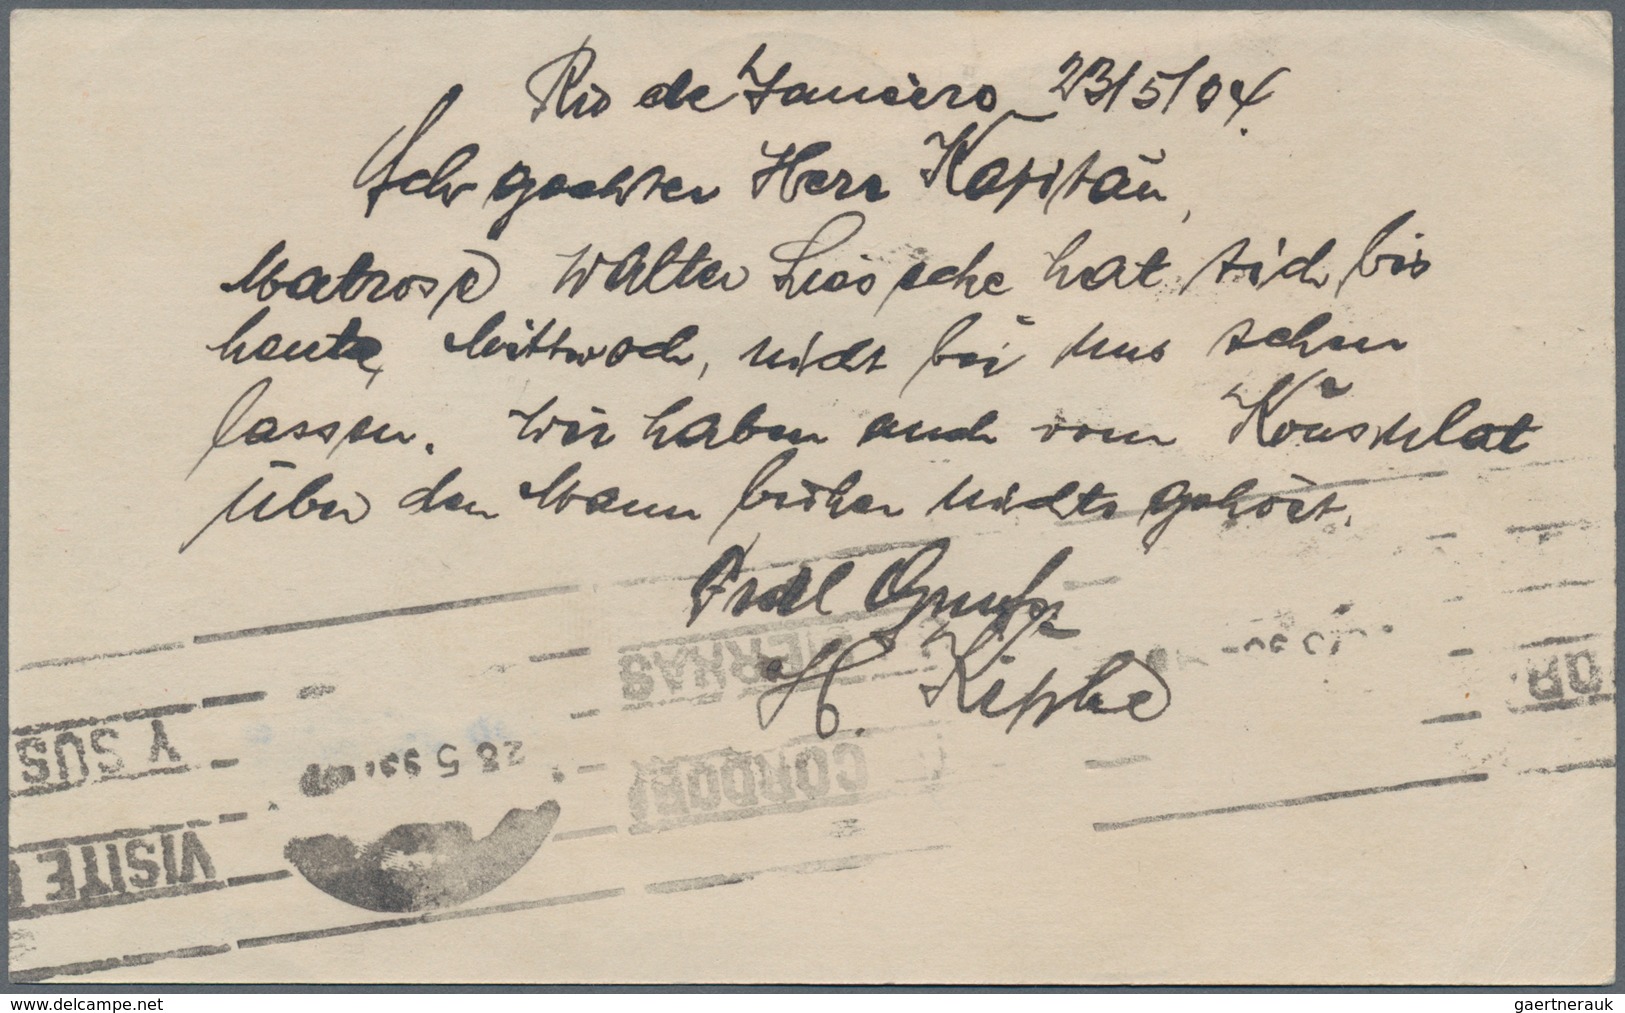 Rio de Janeiro 23/5/04.
Sehr geehrter Herr Kapitän,
Matrose Walter hat sich bis
heute, Mittwoch, nicht bei uns sehen
lassen. Wir haben auch vom Konsulat
über den Mann bisher nichts gehört.
H. Kipke
SIERRAS
CORDOBA
Y SUS
VISITE
28 5
www.delcampe.net
gaertnerauk